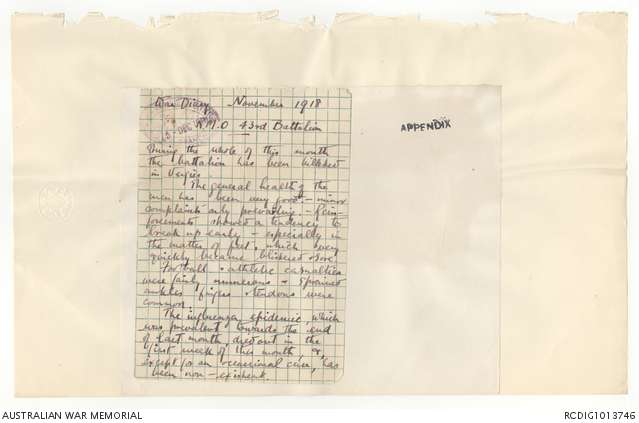 War Diary November 1918
R.M.O 43rd Battalion
During the whole of this month
the battalion has been billeted
in Vergies.
The general health of the
men has been very good – minor
complaints only prevailing – Rein-
forcements showed a tendency to
break up early – especially in
the matter of feet, which very
quickly became blistered & sore.
Football & athletic casualties
were fairly numerous & sprained
ankles, fingers & tendons were
common.
The influenza epidemic, which
was prevalent towards the end
of last month, died out in the
first week of this month, &,
except for an occasional case, has
been non-existent.
APPENDIX
AUSTRALIAN WAR MEMORIAL
RCDIG1013746